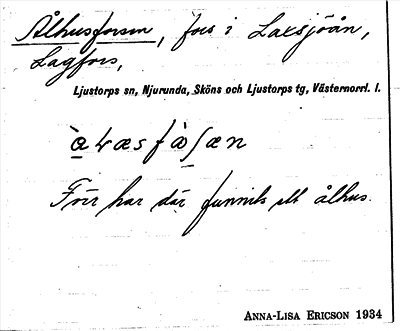 Ålhusforsen, fors i Laxsjöån,
Lagfors,
Ljustorps sn, Njurunda, Sköns och Ljustorps tg, Västernorrl. l.
Förr har där funnits ett ålhus.
ANNA-LISA ERICSON 1934